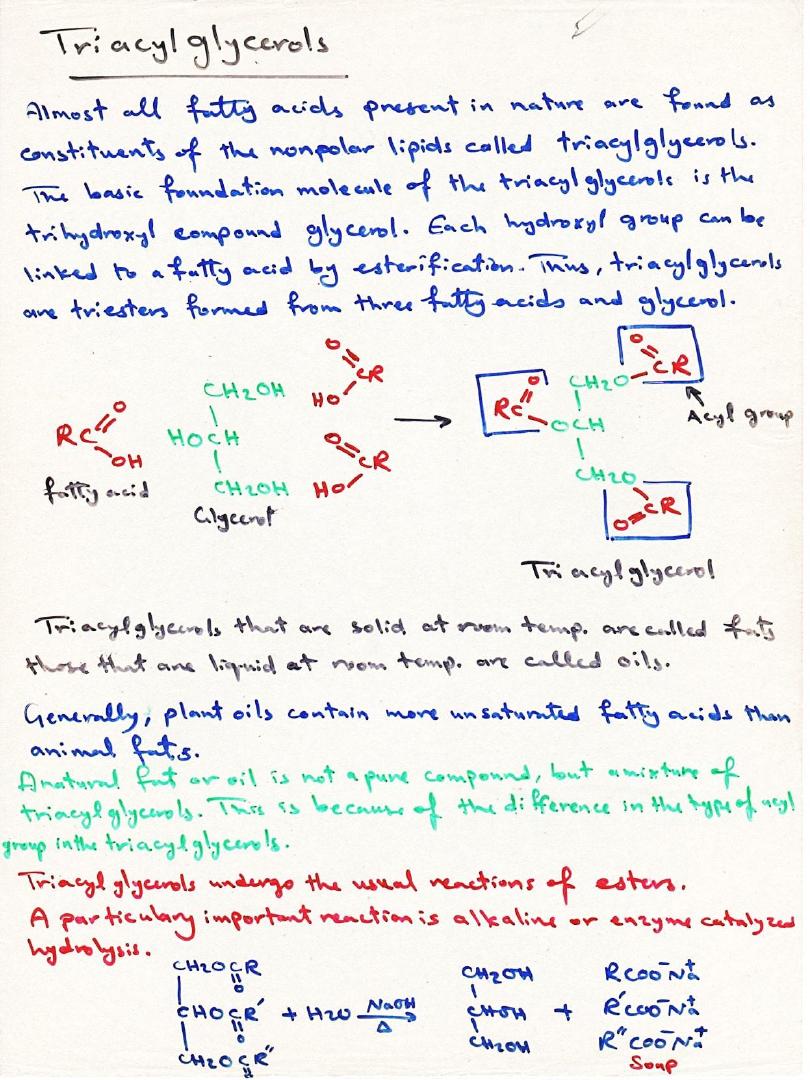 Triacylglycerols
Almost all fatty acids present in nature are found as
constituents of the nonpolar lipids called triacylglycerols.
The basic foundation molecule of the triacylglycerols is the
trihydroxyl compound glycerol. Each hydroxyl group can be
linked to a fatty acid by esterification. Thus, triacylglycerols
are triesters formed from three fatty acids and glycerol.
RC=O OH
fatty acid
CH2OH
HOCH
CH2OH
Glycerol
O=CR HO
O=CR HO
→
RC=O
CH2O
O=CR
Acyl group
OCH
CH2O
O=CR
Triacylglycerol
Triacylglycerols that are solid at room temp. are called fats
those that are liquid at room temp. are called oils.
Generally, plant oils contain more unsaturated fatty acids than
animal fats.
A natural fat or oil is not a pure compound, but a mixture of
triacylglycerols. This is because of the difference in the type of acyl
group in the triacylglycerols.
Triacylglycerols undergo the usual reactions of esters.
A particulary important reaction is alkaline or enzyme catalyzed
hydrolysis.
CH2OCR CH2OH RCOO⁻Na⁺
O
CHOCR' + H2O NaOH Δ → CHOH + R'COO⁻Na⁺
O
CH2OCR" CH2OH R"COO⁻Na⁺
O
Soap